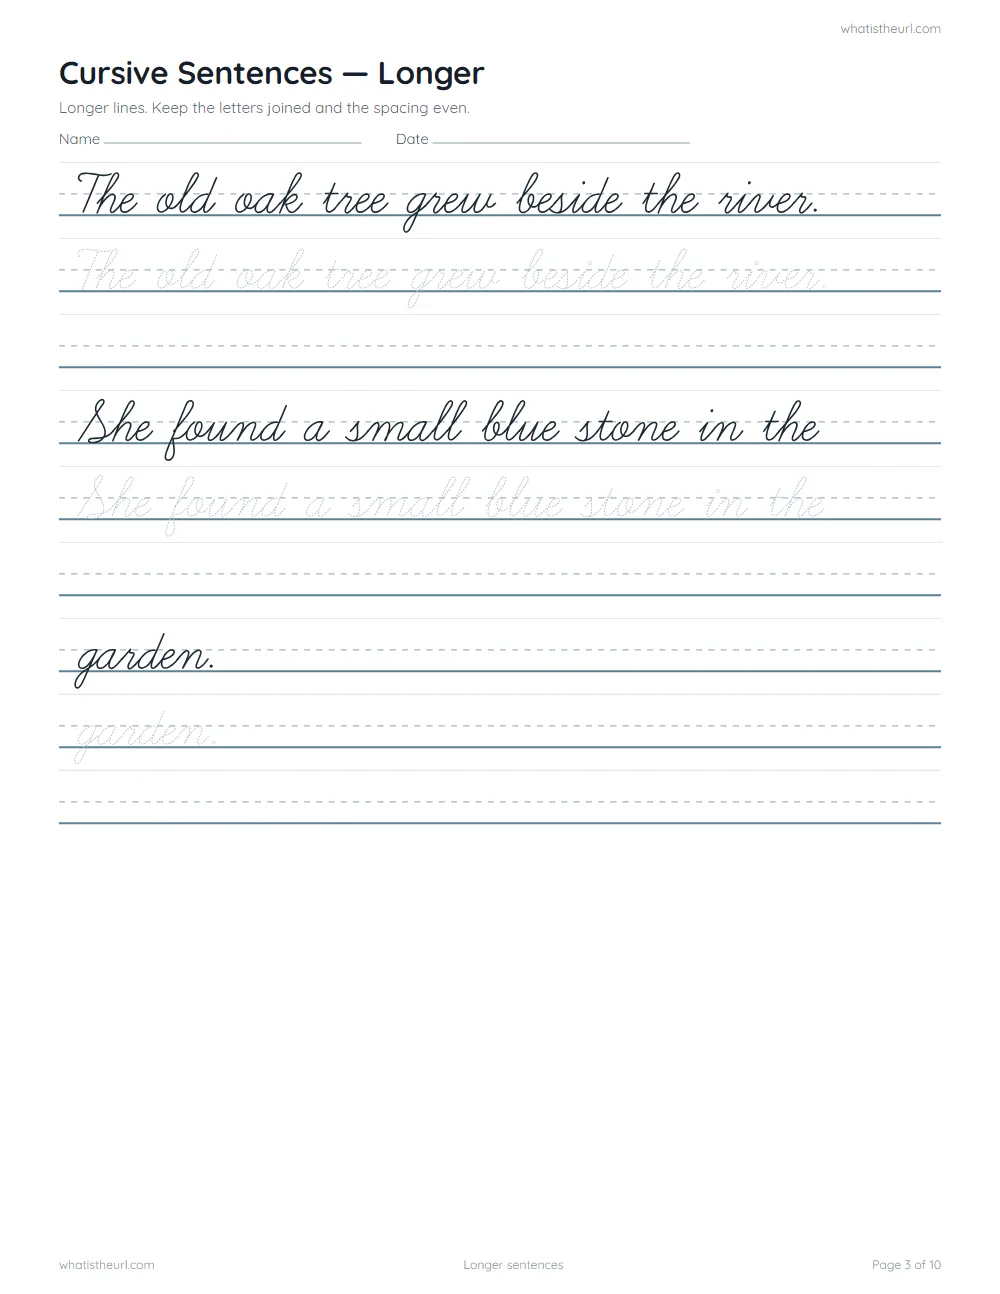 whatistheurl.com
Cursive Sentences — Longer
Longer lines. Keep the letters joined and the spacing even.
Name Date
The old oak tree grew beside the river.
The old oak tree grew beside the river.
She found a small blue stone in the
She found a small blue stone in the
garden.
garden.
whatistheurl.com Longer sentences Page 3 of 10